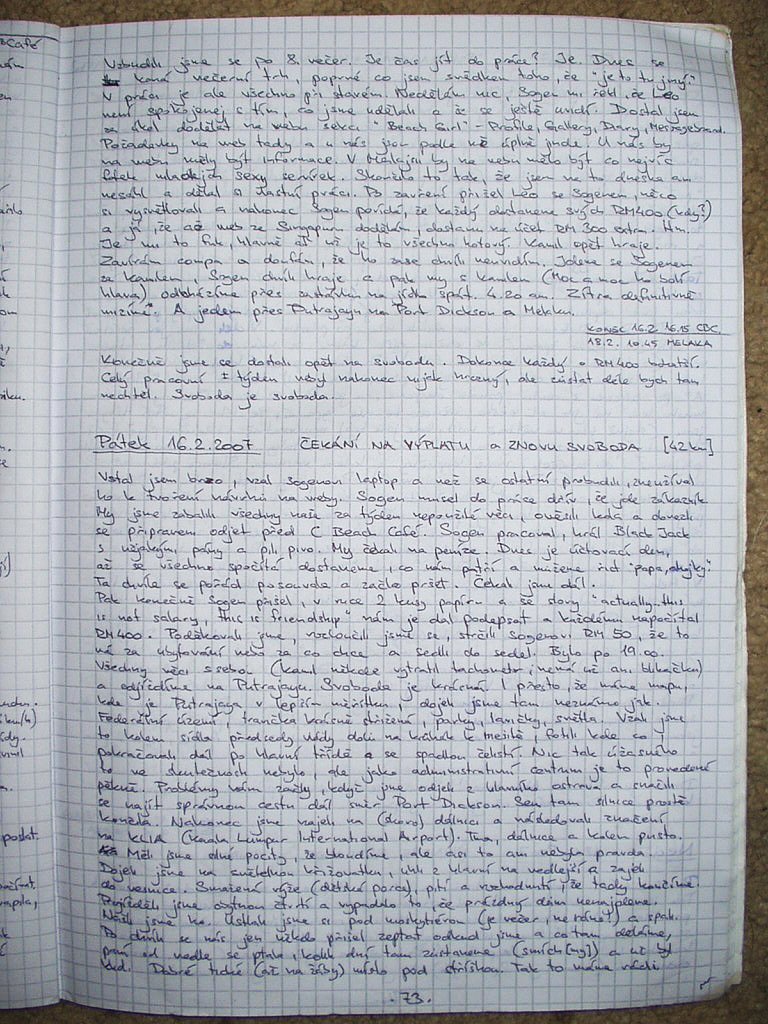 Café
Vzbudili jsme se po 8. večer. Je čas jít do práce? Je. Dnes se
koná večerní trh, poprvé co jsem svědkem toho, že "je to tu jiný."
V práci je ale všechno při starém. Nedělám nic, Sogen mi řekl, že Leo
není spokojenej s tím, co jsme udělali a že se ještě uvidí. Dostal jsem
za úkol dodělat na webu sekci "Beach Girl" - Profile, Gallery, Diary, Messageboard.
Požadavky na web tady a u nás jsou podle mě úplně jinde. U nás by
na webu měly být informace. V Malajsii by na webu mělo být co nejvíc
fotek mladejch sexy servírek. Skončilo to tak, že jsem na to dneska ani
nesáhl a dělal si vlastní práci. Po zavření přišel Leo se Sogenem, něco
si vysvětlovali a nakonec Sogen povídá, že každý dostaneme svých RM400 (kdy?)
a já, že až web ze Singapuru dodělám, dostanu na účet RM 300 extra. Hm.
Je mi to fuk, hlavně ať už je to všechno hotový. Kamil opět hraje.
Zavírám compa a doufám, že ho zase chvíli neuvidím. Jdeme se Sogenem
za Kamilem. Sogen chvíli hraje a pak my s Kamilem (moc a moc ho bolí
hlava) odcházíme přes zastávku na jídlo spát. 4.20 am. Zítra definitivně
mizíme. A jedem přes Putrajayu na Port Dickson a Melaku.
KONEC 16.2. 16.15 CBC.
18.2. 10.45 MELAKA
Konečně jsme se dostali opět na svobodu. Dokonce každý o RM400 bohatší.
Celý pracovní ± týden nebyl nakonec nijak hrozný, ale zůstat déle bych tam
nechtěl. Svoboda je svoboda.
Pátek 16.2.2007 ČEKÁNÍ NA VÝPLATU a ZNOVU SVOBODA [42km]
Vstal jsem brzo, vzal Sogenovi laptop a než se ostatní probudili, zneužíval
ho k tvoření návrhů na weby. Sogen musel do práce dřív, že jde zákazník.
My jsme zabalili všechny naše za týden nepoužité věci, ověsili kola a dovezli
se připraveni odjet před C Beach Café. Sogen pracoval, hrál Black Jack
s nějakými pány a pili pivo. My čekali na peníze. Dnes je účtovací den,
až se všechno spočítá dostaneme, co nám patří a můžeme říct "papa,
Ta chvíle se pořád posouvala a začlo pršet. Čekali jsme dál.
Pak konečně Sogen přišel, v ruce 2 kusy papíru a se slovy "actually this
is not salary, this is friendship" nám je dal podepsat a každému napočítal
RM400. Poděkovali jsme, rozloučili jsme se, strčili Sogenovi RM 50, že to
má za ubytování nebo za co chce a sedli do sedel. Bylo po 19.00.
Všechny věci s sebou (Kamil někde vytratil tachometr, nemá už ani blikačku)
a odjíždíme na Putrajayu. Svoboda je krásná. I přesto, že máme mapu,
kde je Putrajaya v lepším měřítku, dojeli jsme tam neznámo jak.
Federální území, travička krásně střižená, parky, lavičky, světla. Vzali jsme
to kolem sídla předsedy vlády dolů na kávu k mešitě, fotili kde co a
pokračovali dál po hlavní třídě a se spadlou čelistí. Nic tak úžasného
to ve skutečnosti nebylo, ale jako administrativní centrum je to provedené
pěkně. Problémy nám začly, když jsme odjeli z hlavního ostrova a snažili
se najít správnou cestu dál směr Port Dickson. Sem tam silnice prostě
končila. Nakonec jsme najeli na (skoro) dálnici a následovali značení
na KLIA (Kuala Lumpur International Airport). Tma, dálnice a kolem pusto.
Měli jsme silné pocity, že bloudíme, ale asi to ani nebyla pravda.
Dojeli jsme na světelnou křižovatku, uhli z hlavní na vedlejší a zajeli
do vesnice. Smažená rýže (dětská porce), pití a rozhodnutí, že tady končíme.
Projížděli jsme obytnou čtvrtí a vypadalo to, že prázdný dům nenajdeme.
Našli jsme ho. Ustlali jsme si pod moskytiérou (je večer, ne ráno!) a spali.
Po chvíli se nás jen někdo přišel zeptat odkud jsme a co tam děláme,
paní od vedle se ptala, kolik dní tam zůstaneme (smích) a už byl
klid. Dobré tiché (až na žáby) místo pod stříškou. Tak to máme rádi.
. 73 .